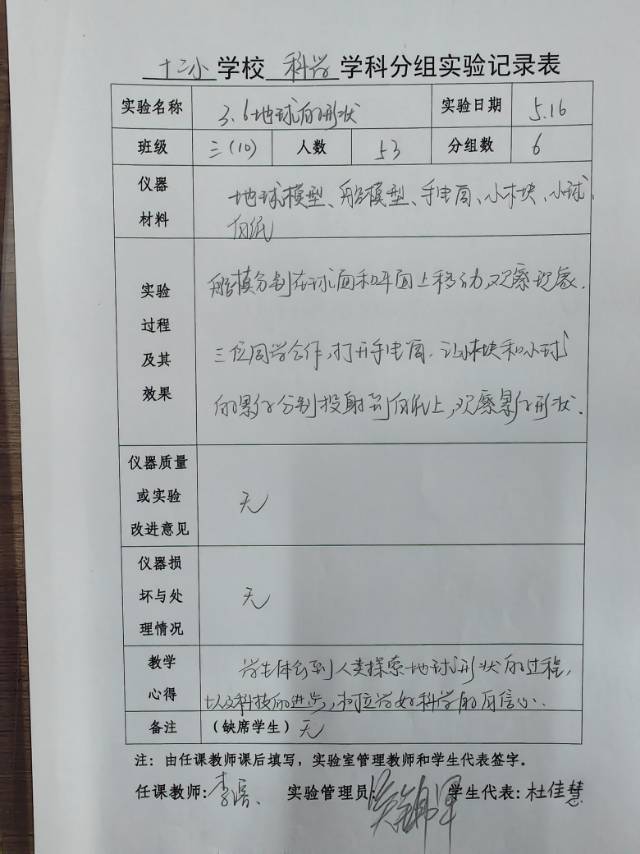 十二小学校 科学 学科分组实验记录表
实验名称 3.6地球的形状 实验日期 5.16
班级 三(10) 人数 53 分组数 6
仪器 地球模型、船模型、手电筒、小木块、小球、
材料 白纸
实验 船模分别在球面和平面上移动,观察现象.
过程
及其 三位同学合作,打开手电筒.让小木块和小球
效果 的影子分别投射到白纸上,观察影子形状.
仪器质量
或实验 无
改进意见
仪器损
坏与处 无
理情况
教学 学生体会到人类探索地球形状的过程,
心得 以及科技的进步,树立学好科学的自信心.
备注 (缺席学生) 无
注:由任课教师课后填写,实验室管理教师和学生代表签字。
任课教师: 李 实验管理员: 学生代表: 杜佳慧